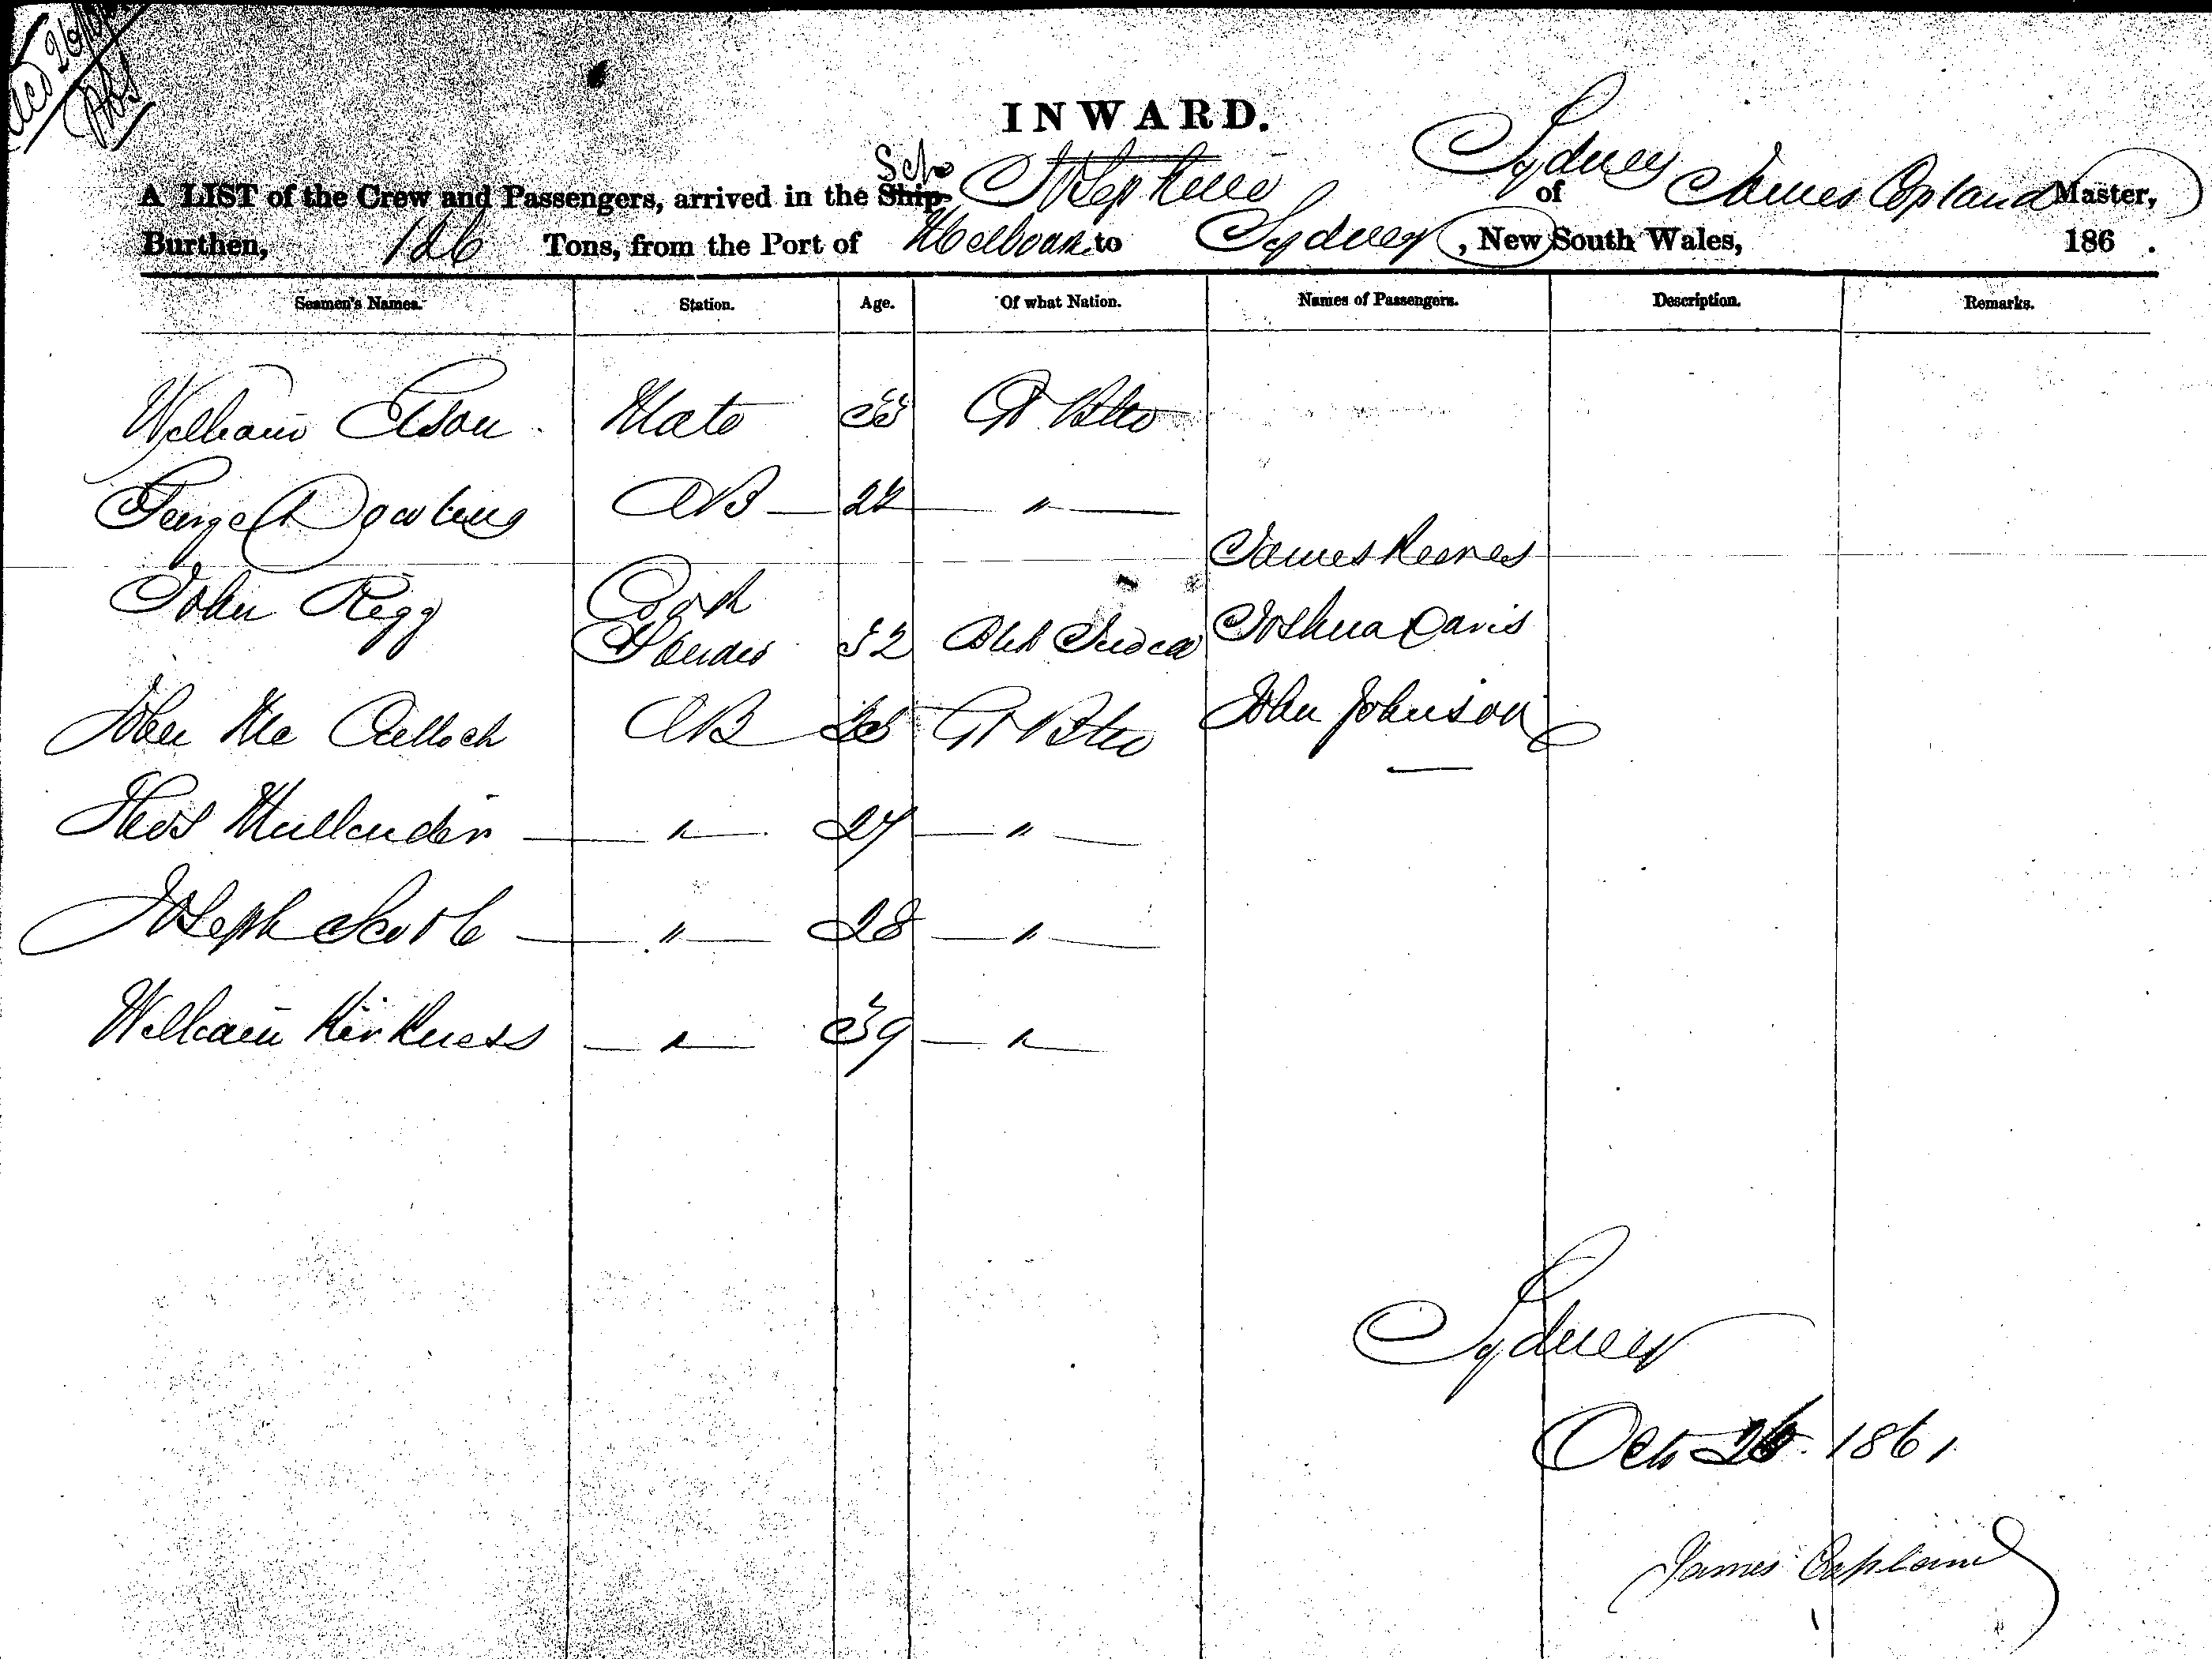 26/10
INWARD.
Sydney
Schr
A LIST of the Crew and Passengers, arrived in the Ship Josephine of James Copland Master,
Burthen, 126 Tons, from the Port of Melbourne to Sydney, New South Wales, 186 .
Seamen's Names. Station. Age. Of what Nation. Names of Passengers. Description. Remarks.
William Eason Mate 33 Gt
George Dowling AB 22 "
James Reeves
John Regg Cook
32 Joshua Davis
John Mc Culloch AB Gt John Johnson
Thos Mullender " 27 "
Joseph " 28 "
William Kirkness " 39 "
Sydney
Octr 26 1861
James Copland